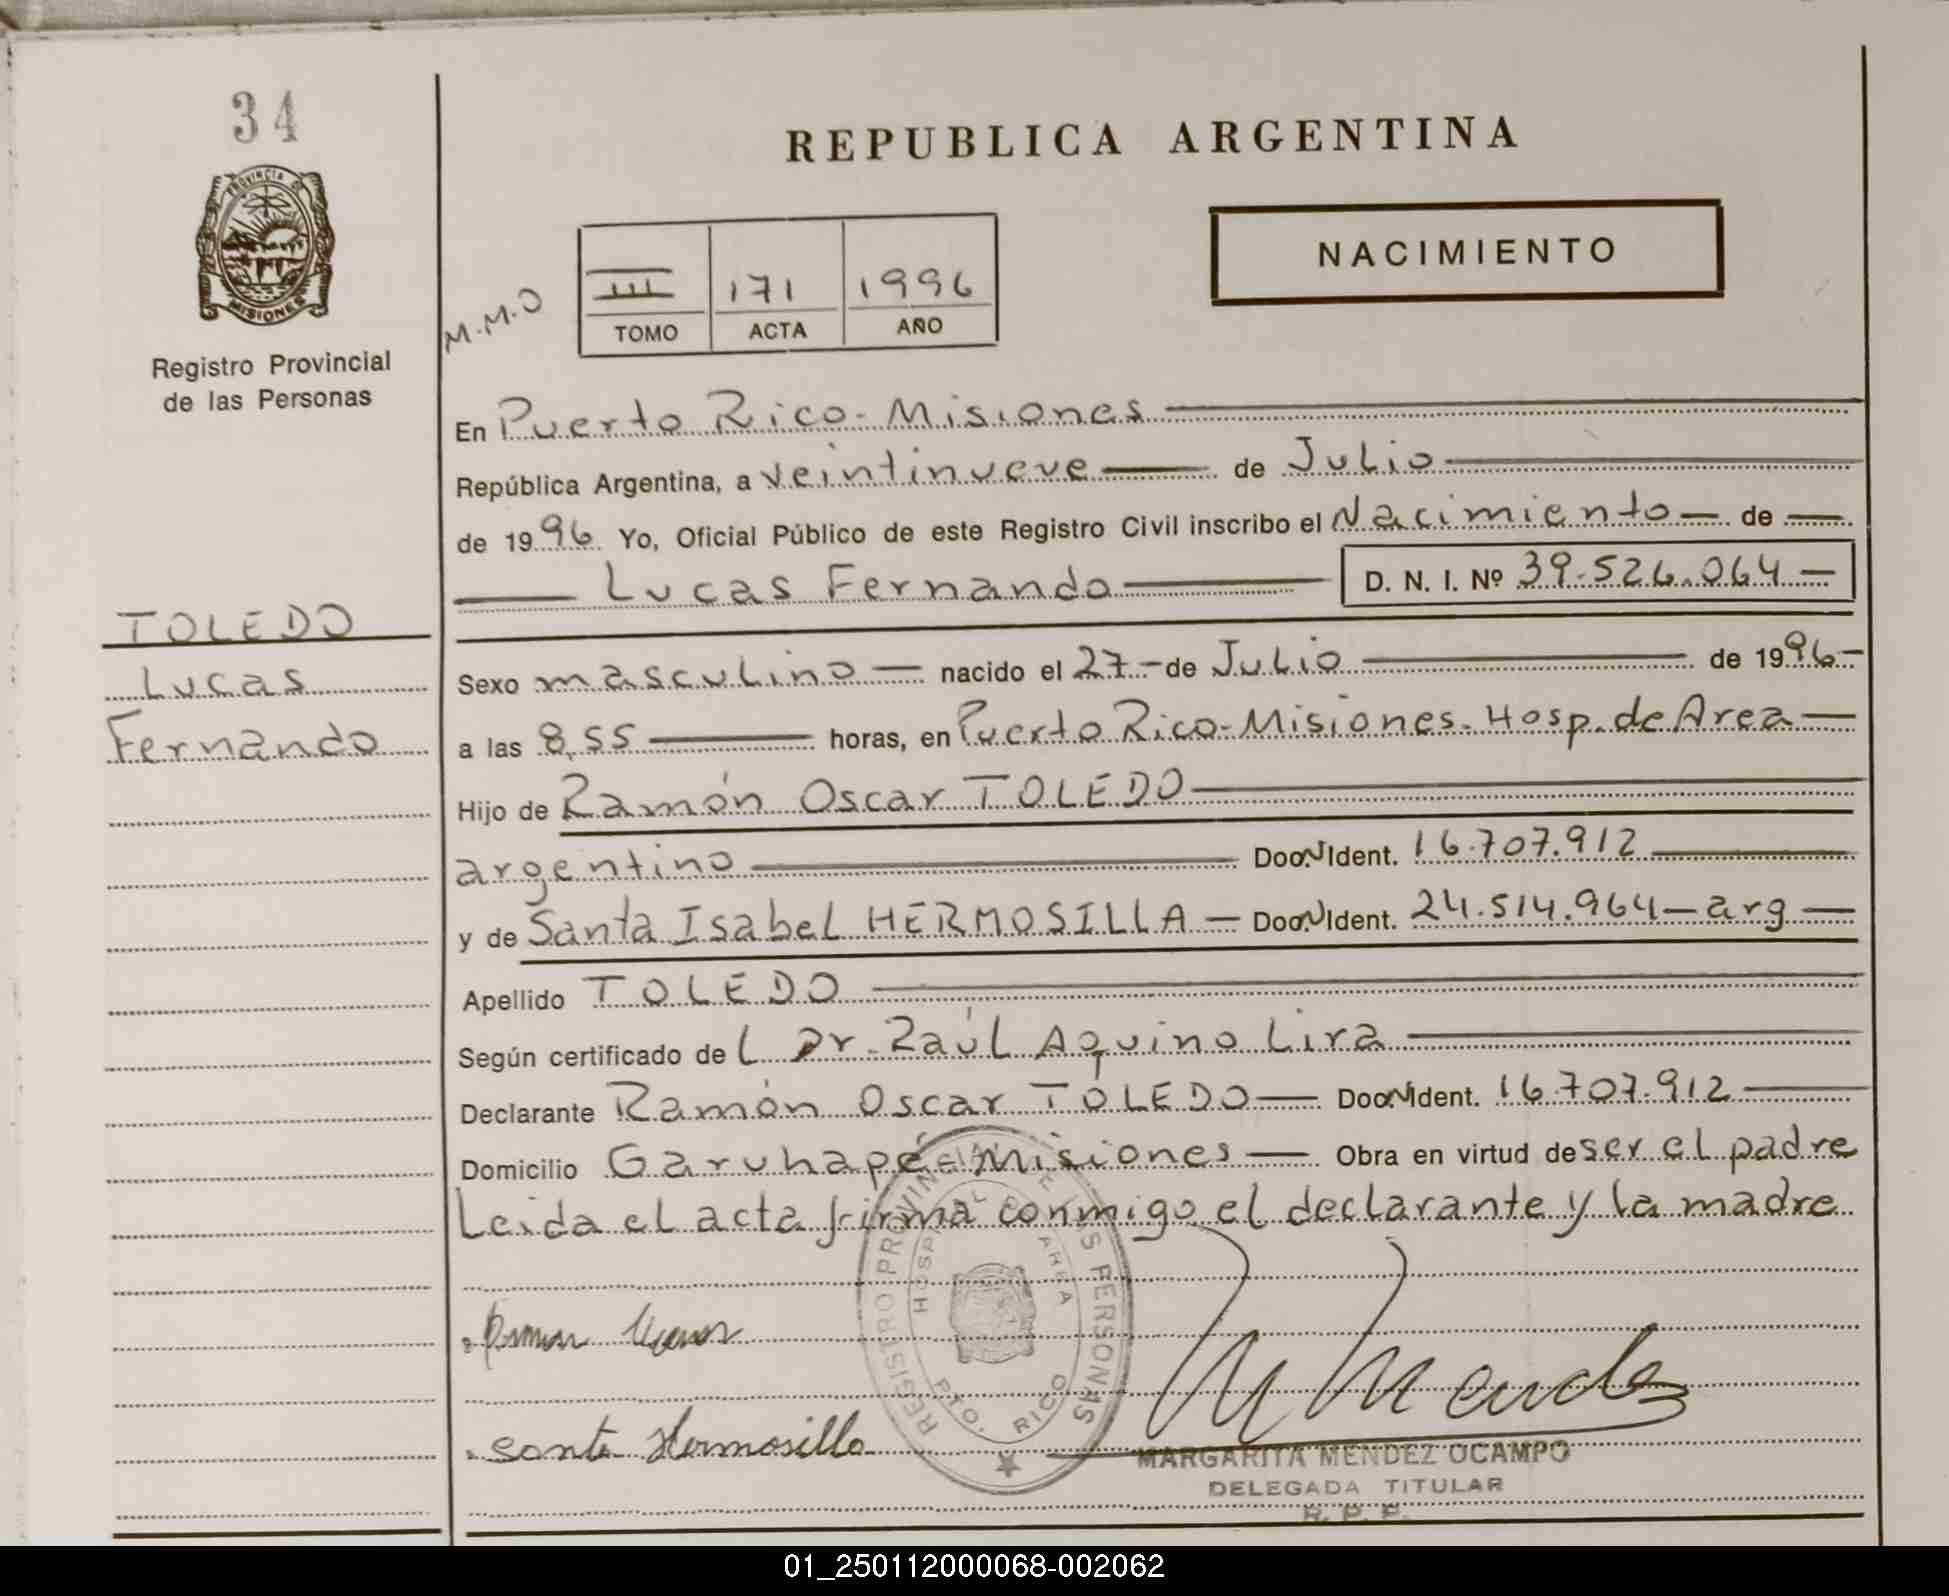 34
PROVINCIA DE
MISIONES
Registro Provincial
de las Personas
TOLEDO
Lucas
Fernando
REPUBLICA ARGENTINA
NACIMIENTO
M.M.O
III 171 1996
TOMO ACTA AÑO
En Puerto Rico - Misiones
República Argentina, a veintinueve de Julio
de 1996 Yo, Oficial Público de este Registro Civil inscribo el Nacimiento de
Lucas Fernando D. N. I. Nº 39.526.064
Sexo masculino nacido el 27 - de Julio de 1996
a las 8,55 horas, en Puerto Rico - Misiones. Hosp. de Area
Hijo de Ramón Oscar TOLEDO
argentino Doc. N Ident. 16.707.912
y de Santa Isabel HERMOSILLA Doc. N Ident. 24.514.964 - arg
Apellido TOLEDO
Según certificado de l Dr. Raúl Aquino Lira
Declarante Ramón Oscar TOLEDO Doc. N Ident. 16.707.912
Domicilio Garuhapé - Misiones Obra en virtud de ser el padre
Leida el acta firma conmigo el declarante y la madre
REGISTRO PROVINCIAL DE LAS PERSONAS
HOSPITAL DE AREA
PTO. RICO
Santa Hermosilla
M Mendez
MARGARITA MENDEZ OCAMPO
DELEGADA TITULAR
R. P. P.
01_250112000068-002062